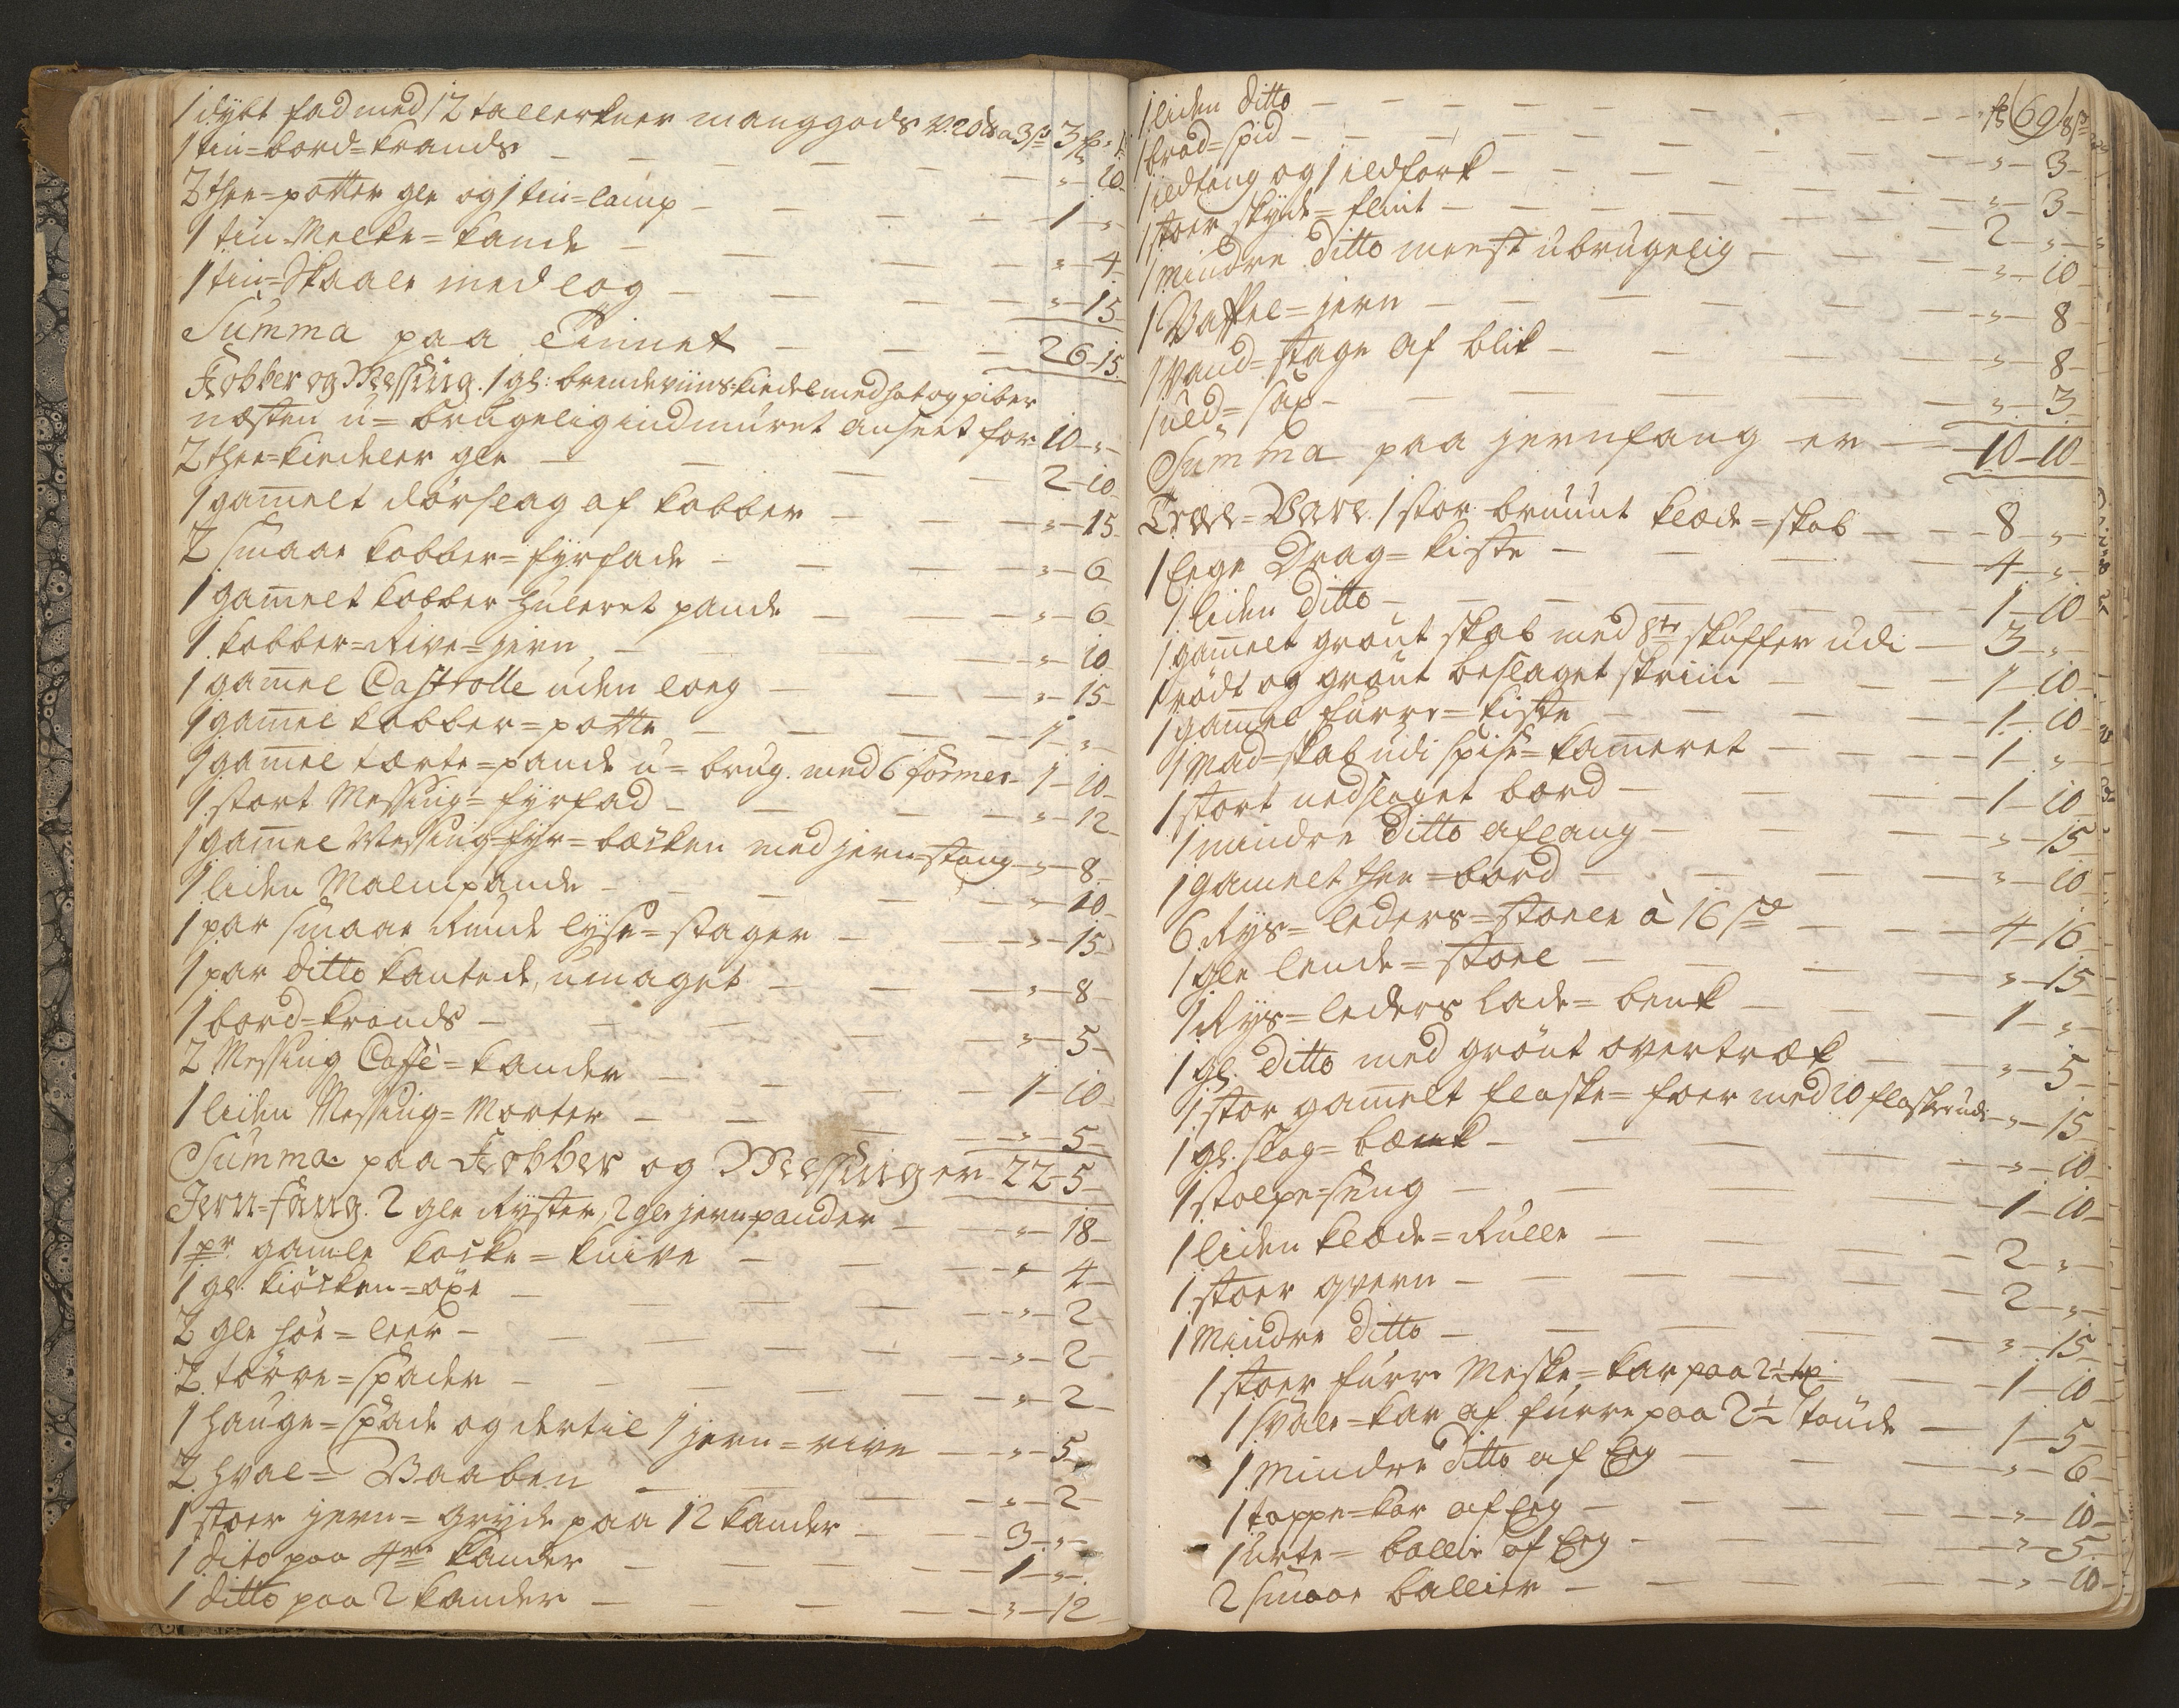 1 dybt fad med 12 tallerkner manggods v. 20 ℔ a 3 s 3
1 tin=bord=krands — — — — „ — 20
2 thee=potter gle og 1 tin=lamp — — — 1 — „
1 tin Melke=kande — — — — „ — 4
1 tin=Skaale med log — — — — „ — 15
Summa paa Tinnet — — — 26 — 15
Kobber og Messing. 1 gl: brendeviins=kiedel med hat og piber
næsten u=brugelig indmuret anseet for 10 — „
2 thee=kiedeler gle — — — 2 — 10
1 gam̄elt dørslag af kobber — — — „ — 15
2 smaae kobber=fyrfade — — — „ — 6
1 gam̄elt kobber huleret pande — — — „ — 6
1 kobber=Rive=jern — — — „ — 10
1 gam̄el Castrolle uden loeg — — — „ — 15
1 gam̄el kobber=potte — — — 1 — „
1 gam̄el tærte=pande u=brug. med 6 former — 1 — 10
1 stort Messing=fyrfad — — — „ — 12
1 gam̄el Messing=fyr=bæcken med jern=stang — „ — 8
1 liden Malmpande — — — „ — 10
1 par smaae Runde lyse=stager — — „ — 15
1 par ditto kantede, umaget — — — „ — 8
1 bord=krands — — — „ — 5
2 Messing Caffè=kander — — — 1 — 10
1 liden Messing=Morter — — — „ — 5
Summa paa Kobber og Messing er 22 — 5
Jern=fang. 2 gle Ryster, 2 gle jernpander — „ — 18
1 pr gamle kocke=knive — — — „ — 4
1 gl: kiöcken=öxe — — — „ — 2
2 gle höe=leer — — — „ — 2
2 törve=spader — — — „ — 2
1 hauge=spade og dertil 1 jern=rive — „ — 5
2 hval=Vaaben — — — „ — 2
1 stoer jern=gryde paa 12 kander — — 3 — „
1 dito paa 4re kander — — — 1 — „
1 ditto paa 2 kander — — — „ — 12
69
1 liden ditto — — — —
1 brad=spid — — — „ — 3
1 ildtang og 1 ildfork — — — „ — 3
1 stoer skyde=flint — — — 2 — „
1 mindre ditto meest ubrugelig — — — „ — 10
1 Vaffel=jern — — — „ — 8
1 vand=stage af blik — — — „ — 8
1 uld=sax — — — „ — 3
Summa paa jernfang er — 10 — 10
Træe=Vare. 1 stor bruunt klæde=skab — 8 — „
1 Eege Drag=kiste — — — 4 — „
1 liden ditto — — — 1 — 10
1 gam̄elt grönt skab med 8te skuffer udi — 3 — „
1 rödt og grönt beslaget skriin — — — 1 — 10
1 gam̄el furre=kiste — — — 1 — 10
1 Mad=skab udi spise=kam̄eret — — — 1 — „
1 stort nedslaget bord — — — 1 — 10
1 mindre ditto aflang — — — „ — 15
1 gamelt thee=bord — — — „ — 10
6 Rys=leders=stoele à 16 s — — — 4 — 16
1 gle lende=stoel — — — „ — 15
1 Rys=leders lade=benk — — — 1 — „
1 gl. ditto med grönt overtræk — — „ — 5
1 stor gam̄elt flaske=foer med 20 flasker udi „ — 15
1 gl. slag=bænk — — — „ — 10
1 stolpe=seng — — — 1 — 10
1 liden klæde=Rulle — — — 2 — „
1 stoer qvern — — — 2 — „
1 Mindre ditto — — — „ — 15
1 stoer furre Meske=kar paa 2½ — 1 — 10
1 svale=kar af furre paa 2½ tönde — 1 — 5
1 Mindre ditto af Eeg — — — „ — 6
1 tappe=kar af Eeg — — — „ — 10
1 urte=ballie af Eeg — — — „ — 5
2 smaae ballier — — — „ — 10